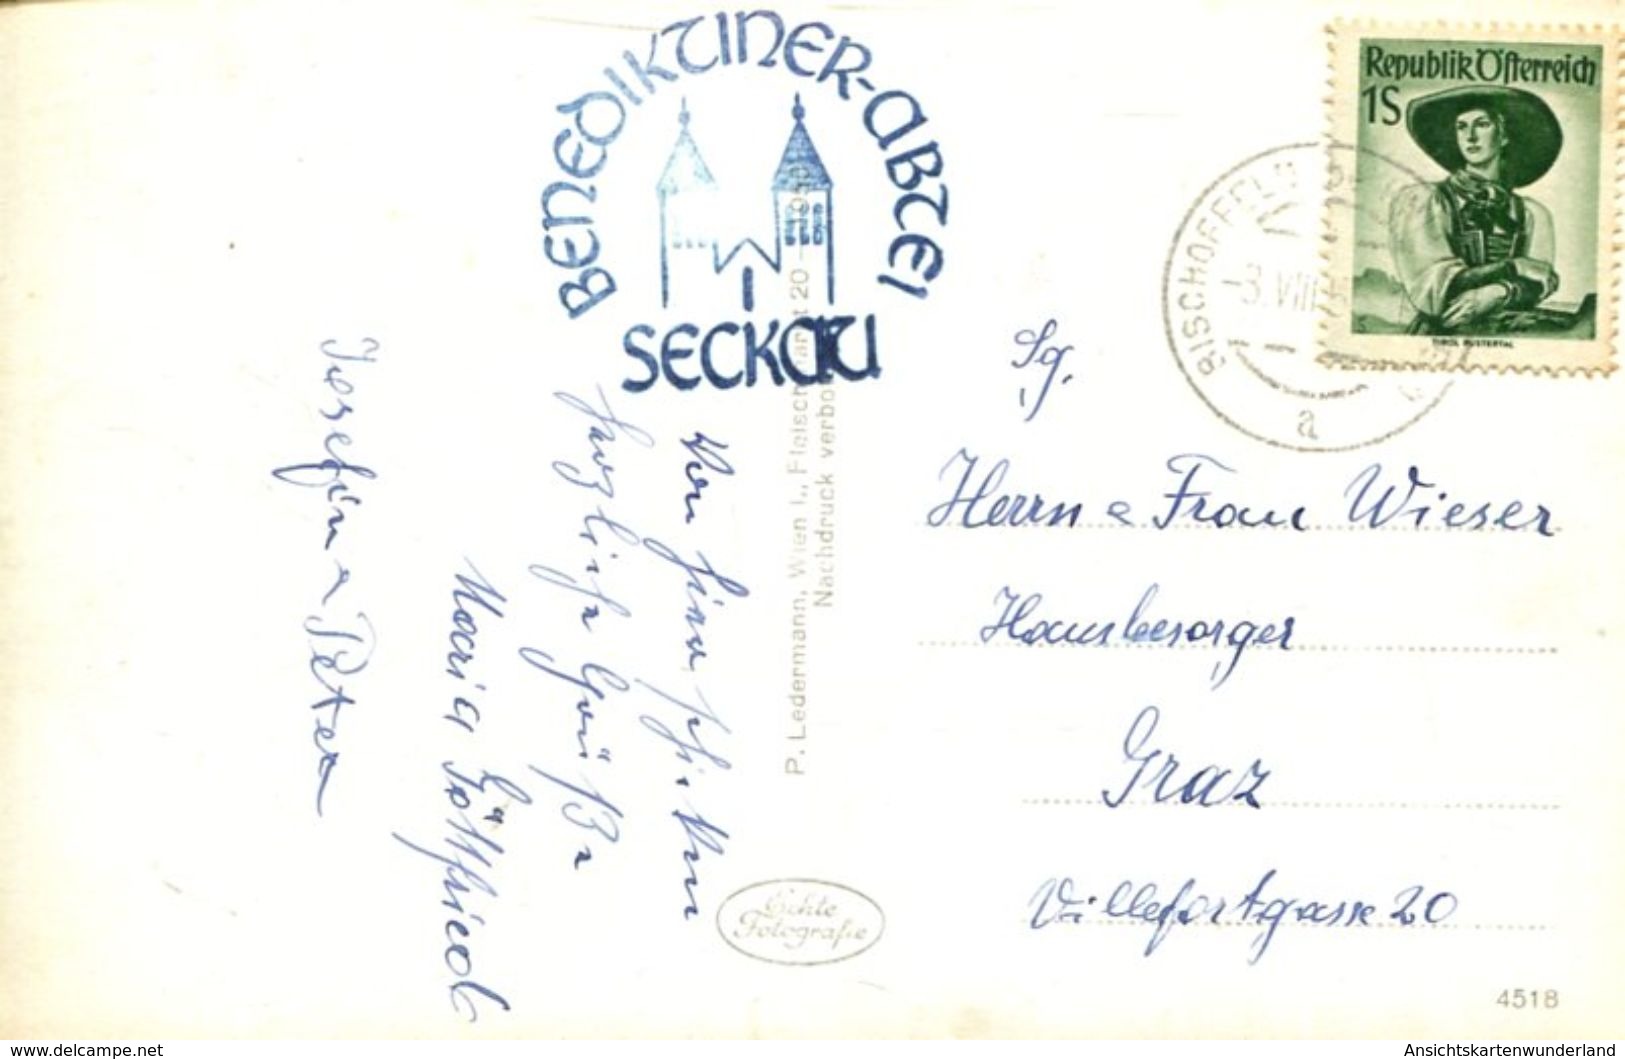 BENEDIKTINER-ABTEI
SECKAU
Republik Österreich
1S
TIROL PUSTERTAL
BISCHOFFELD
-3.VIII
a
Von hier schicken
herzliche Grüße
Maria Gottfried
Josefine Peter
P. Ledermann, Wien I., Fleischmarkt 20 - 1950
Nachdruck verboten
Echte
Fotografie
Sg.
Herrn e Frau Wieser
Hausbesorger
Graz
Villefortgasse 20
4518
www.delcampe.net
Ansichtskartenwunderland